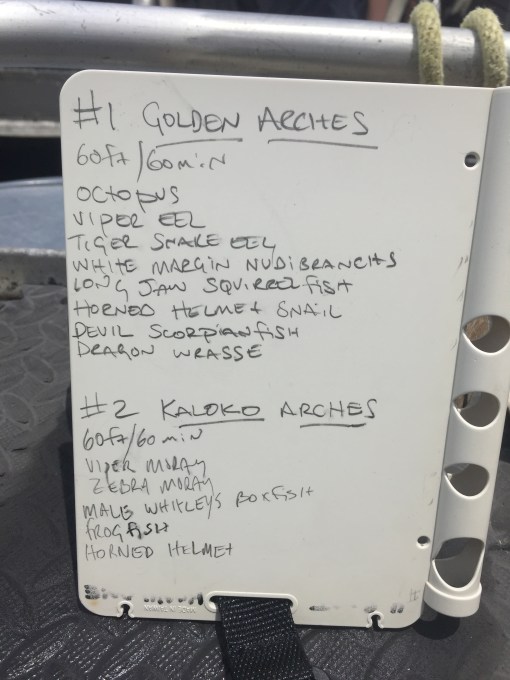 #1 GOLDEN ARCHES
60ft/60min
OCTOPUS
VIPER EEL
TIGER SNAKE EEL
WHITE MARGIN NUDIBRANCHS
LONG JAW SQUIRREL FISH
HORNED HELMET SNAIL
DEVIL SCORPIANFISH
DRAGON WRASSE
#2 KALOKO ARCHES
60ft/60min
VIPER MORAY
ZEBRA MORAY
MALE WHITLEYS BOXFISH
FROGFISH
HORNED HELMET